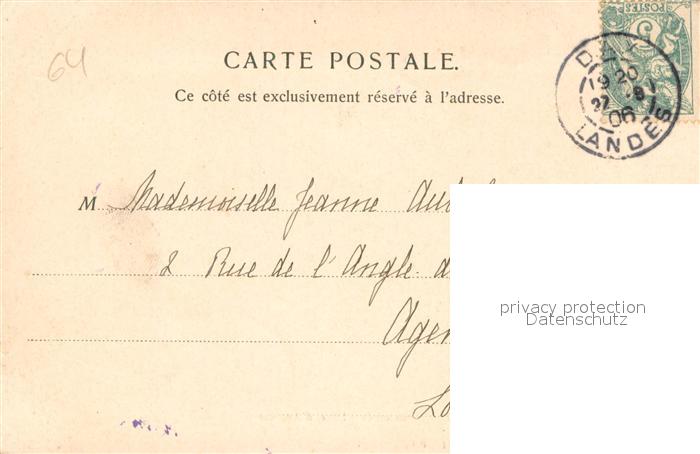 64
CARTE POSTALE.
Ce côté est exclusivement réservé à l'adresse.
POSTES
DAX
19 20
27 -8
06
LANDES
M Mademoiselle Jeanne
2 Rue de l'Angle
Agen
privacy protection
Datenschutz